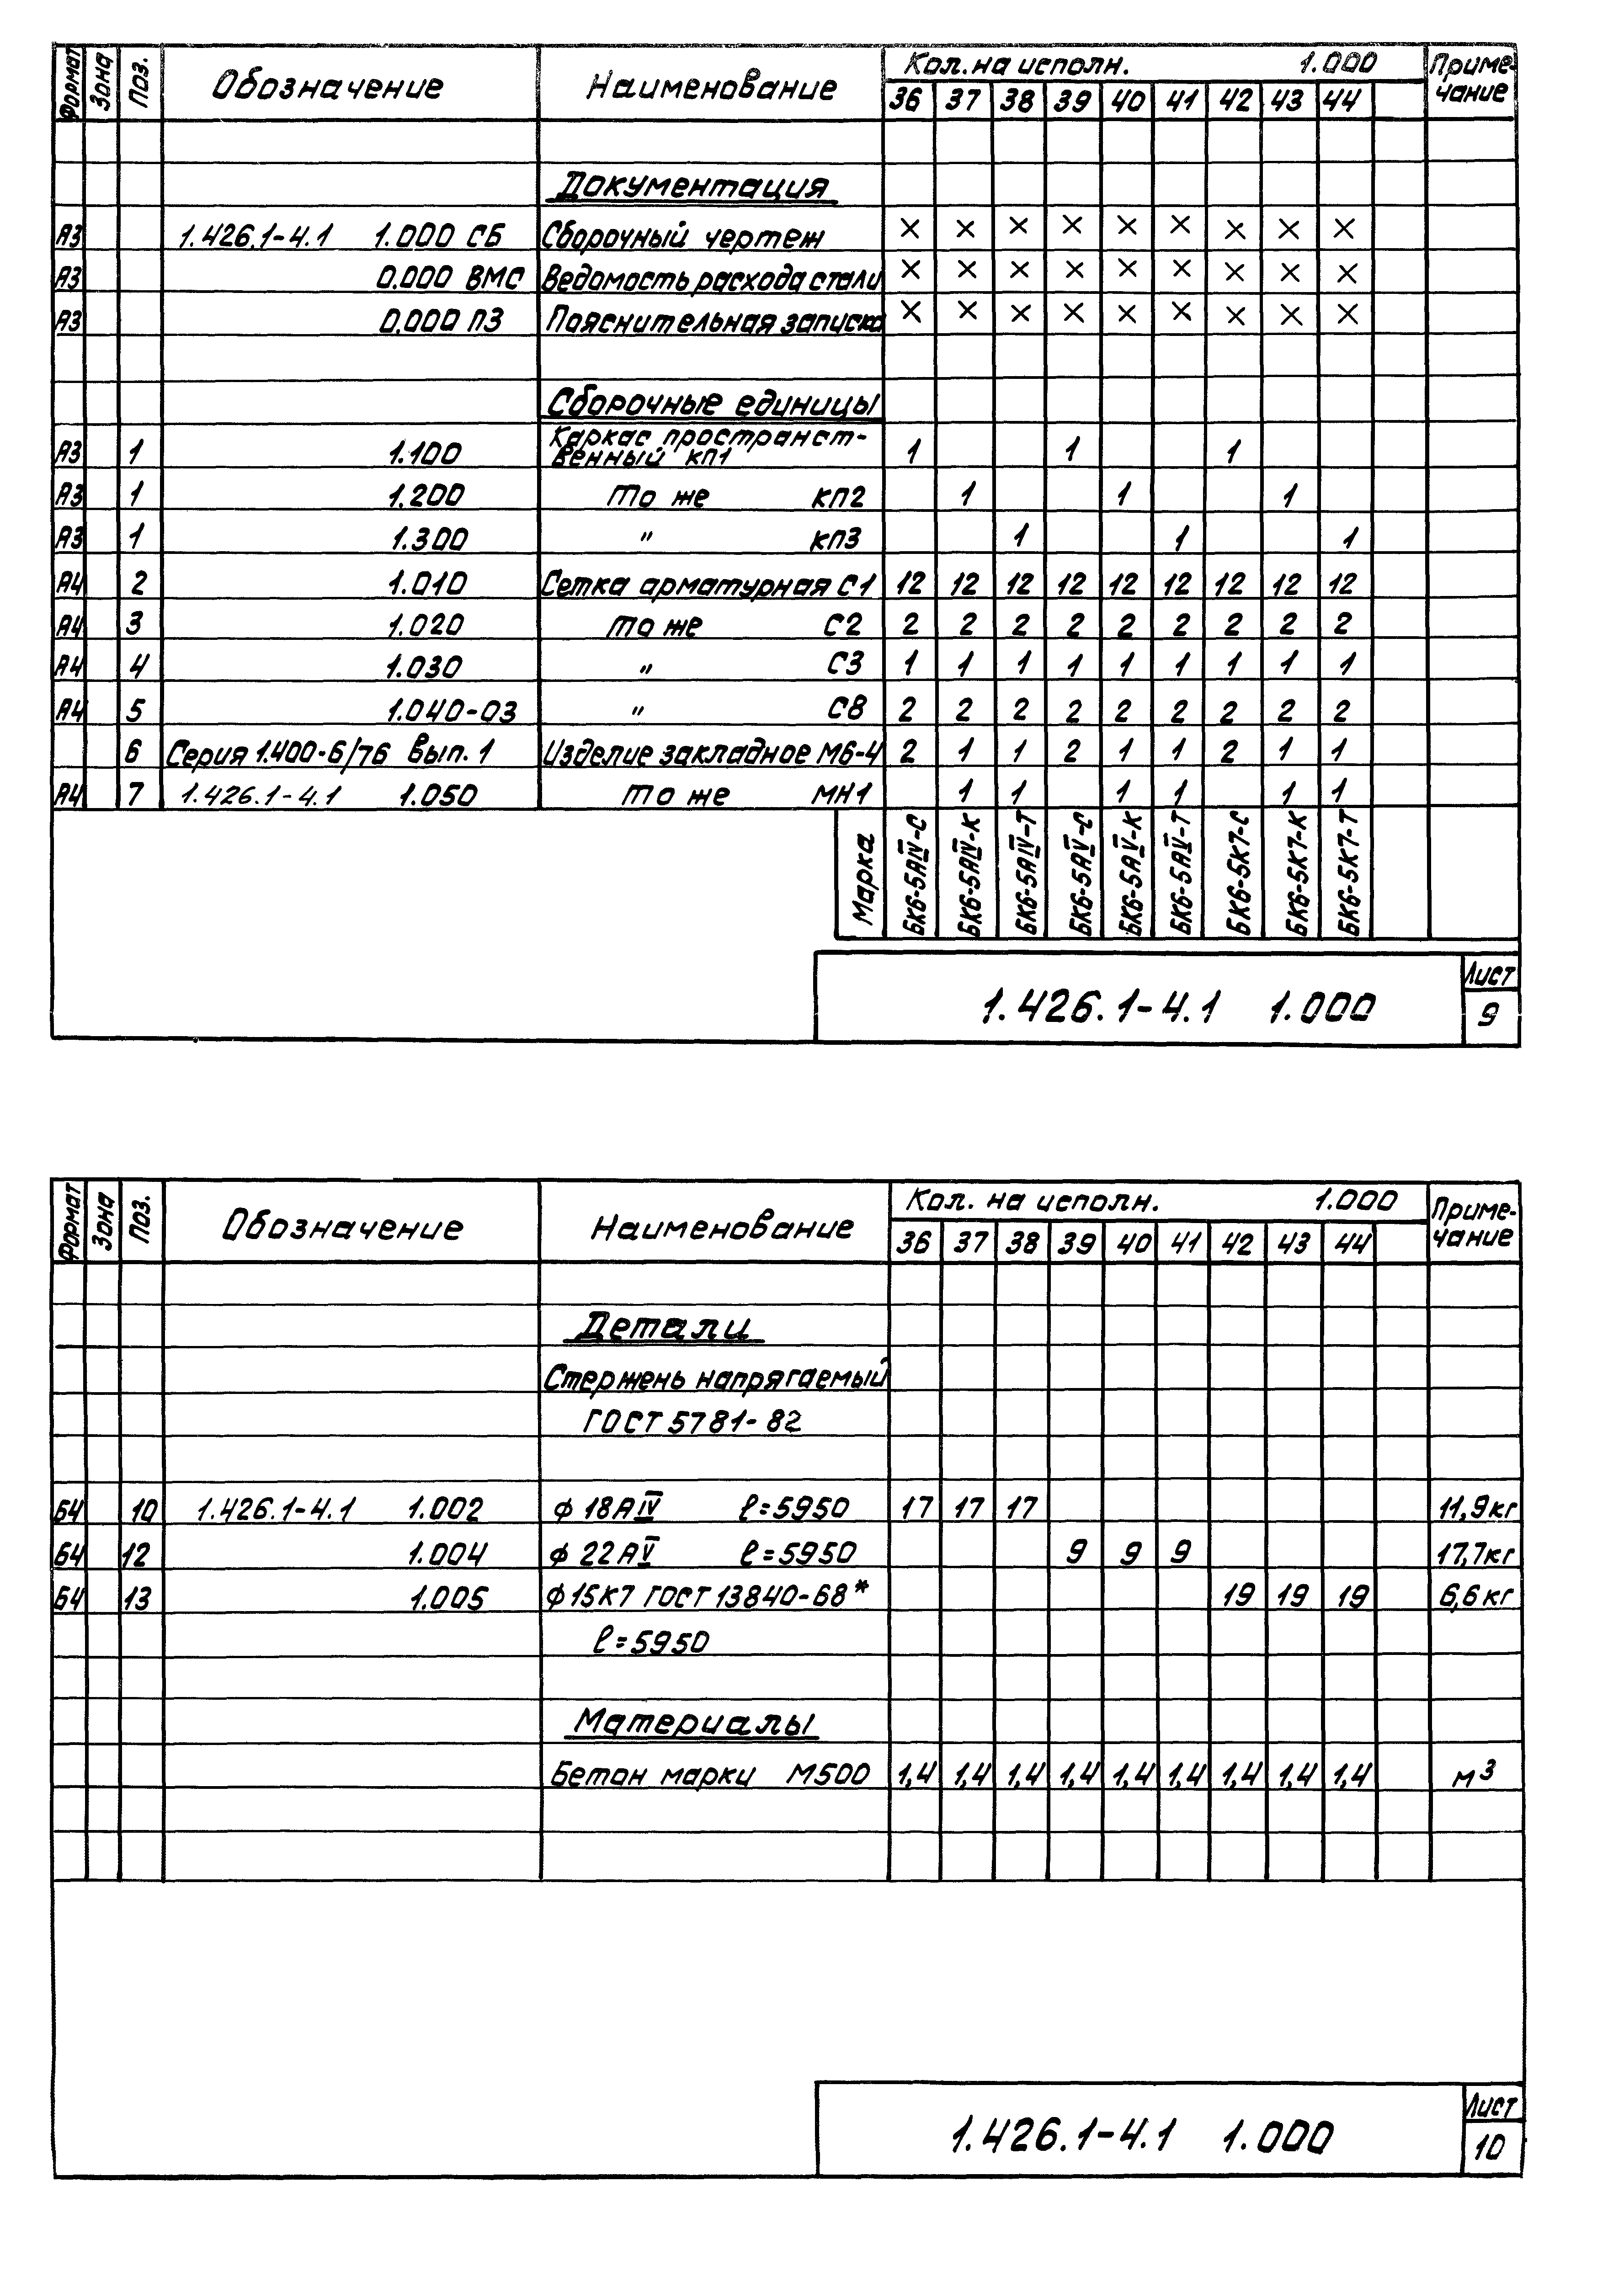 Формат Зона Поз. Обозначение Наименование Кол. на исполн. 1.000 Приме-
чание
36 37 38 39 40 41 42 43 44
Документация
А3 1.426.1-4.1 1.000 СБ Сборочный чертеж × × × × × × × × ×
А3 0.000 ВМС Ведомость расхода стали × × × × × × × × ×
А3 0.000 ПЗ Пояснительная записка × × × × × × × × ×
Сборочные единицы
Каркас пространст-
А3 1 1.100 венный КП1 1 1 1
А3 1 1.200 То же КП2 1 1 1
А3 1 1.300 " КП3 1 1 1
А4 2 1.010 Сетка арматурная С1 12 12 12 12 12 12 12 12 12
А4 3 1.020 То же С2 2 2 2 2 2 2 2 2 2
А4 4 1.030 " С3 1 1 1 1 1 1 1 1 1
А4 5 1.040-03 " С8 2 2 2 2 2 2 2 2 2
6 Серия 1.400-6/76 Вып. 1 Изделие закладное М6-4 2 1 1 2 1 1 2 1 1
А4 7 1.426.1-4.1 1.050 То же МН1 1 1 1 1 1 1
Марка БК6-5АIV-С БК6-5АIV-К БК6-5АIV-Т БК6-5АV-С БК6-5АV-К БК6-5АV-Т БК6-5К7-С БК6-5К7-К БК6-5К7-Т
1.426.1-4.1 1.000 Лист
9
Формат Зона Поз. Обозначение Наименование Кол. на исполн. 1.000 Приме-
чание
36 37 38 39 40 41 42 43 44
Детали
Стержень напрягаемый
ГОСТ 5781-82
Б4 10 1.426.1-4.1 1.002 ϕ 18АIV ℓ=5950 17 17 17 11,9кг
Б4 12 1.004 ϕ 22АV ℓ=5950 9 9 9 17,7кг
Б4 13 1.005 ϕ15К7 ГОСТ 13840-68* 19 19 19 6,6 кг
ℓ=5950
Материалы
Бетон марки М500 1,4 1,4 1,4 1,4 1,4 1,4 1,4 1,4 1,4 м³
1.426.1-4.1 1.000 Лист
10